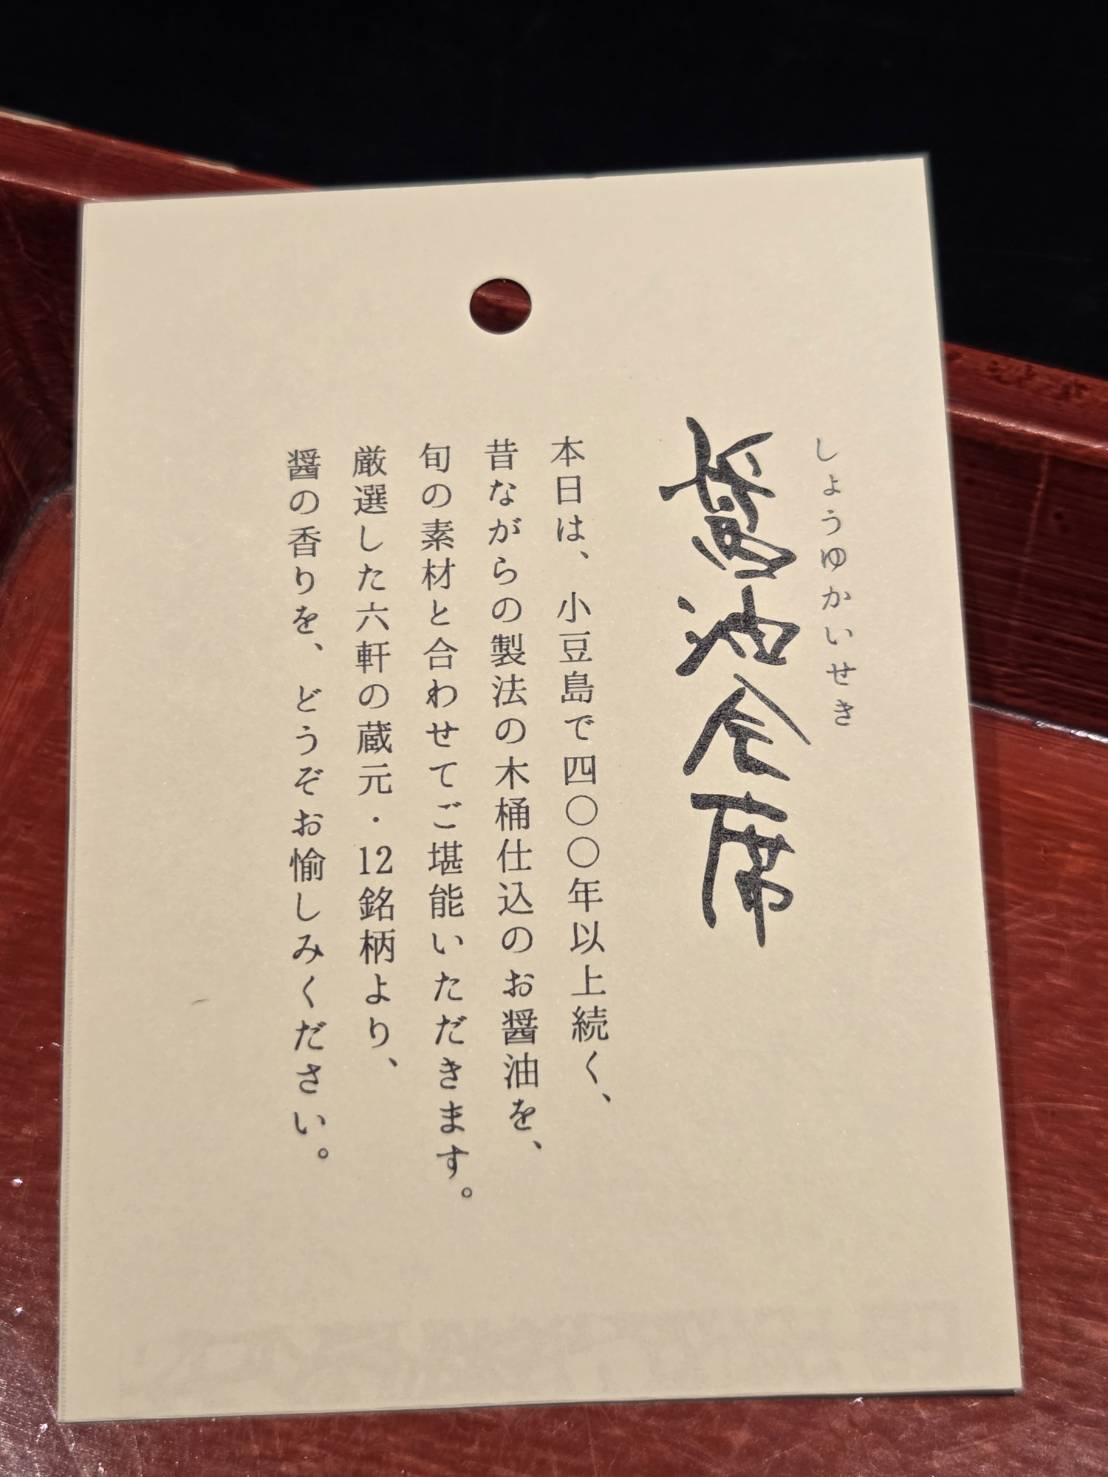 しょうゆかいせき
醤油会席
本日は、小豆島で四〇〇年以上続く、
昔ながらの製法の木桶仕込のお醤油を、
旬の素材と合わせてご堪能いただきます。
厳選した六軒の蔵元・12銘柄より、
醤の香りを、どうぞお愉しみください。